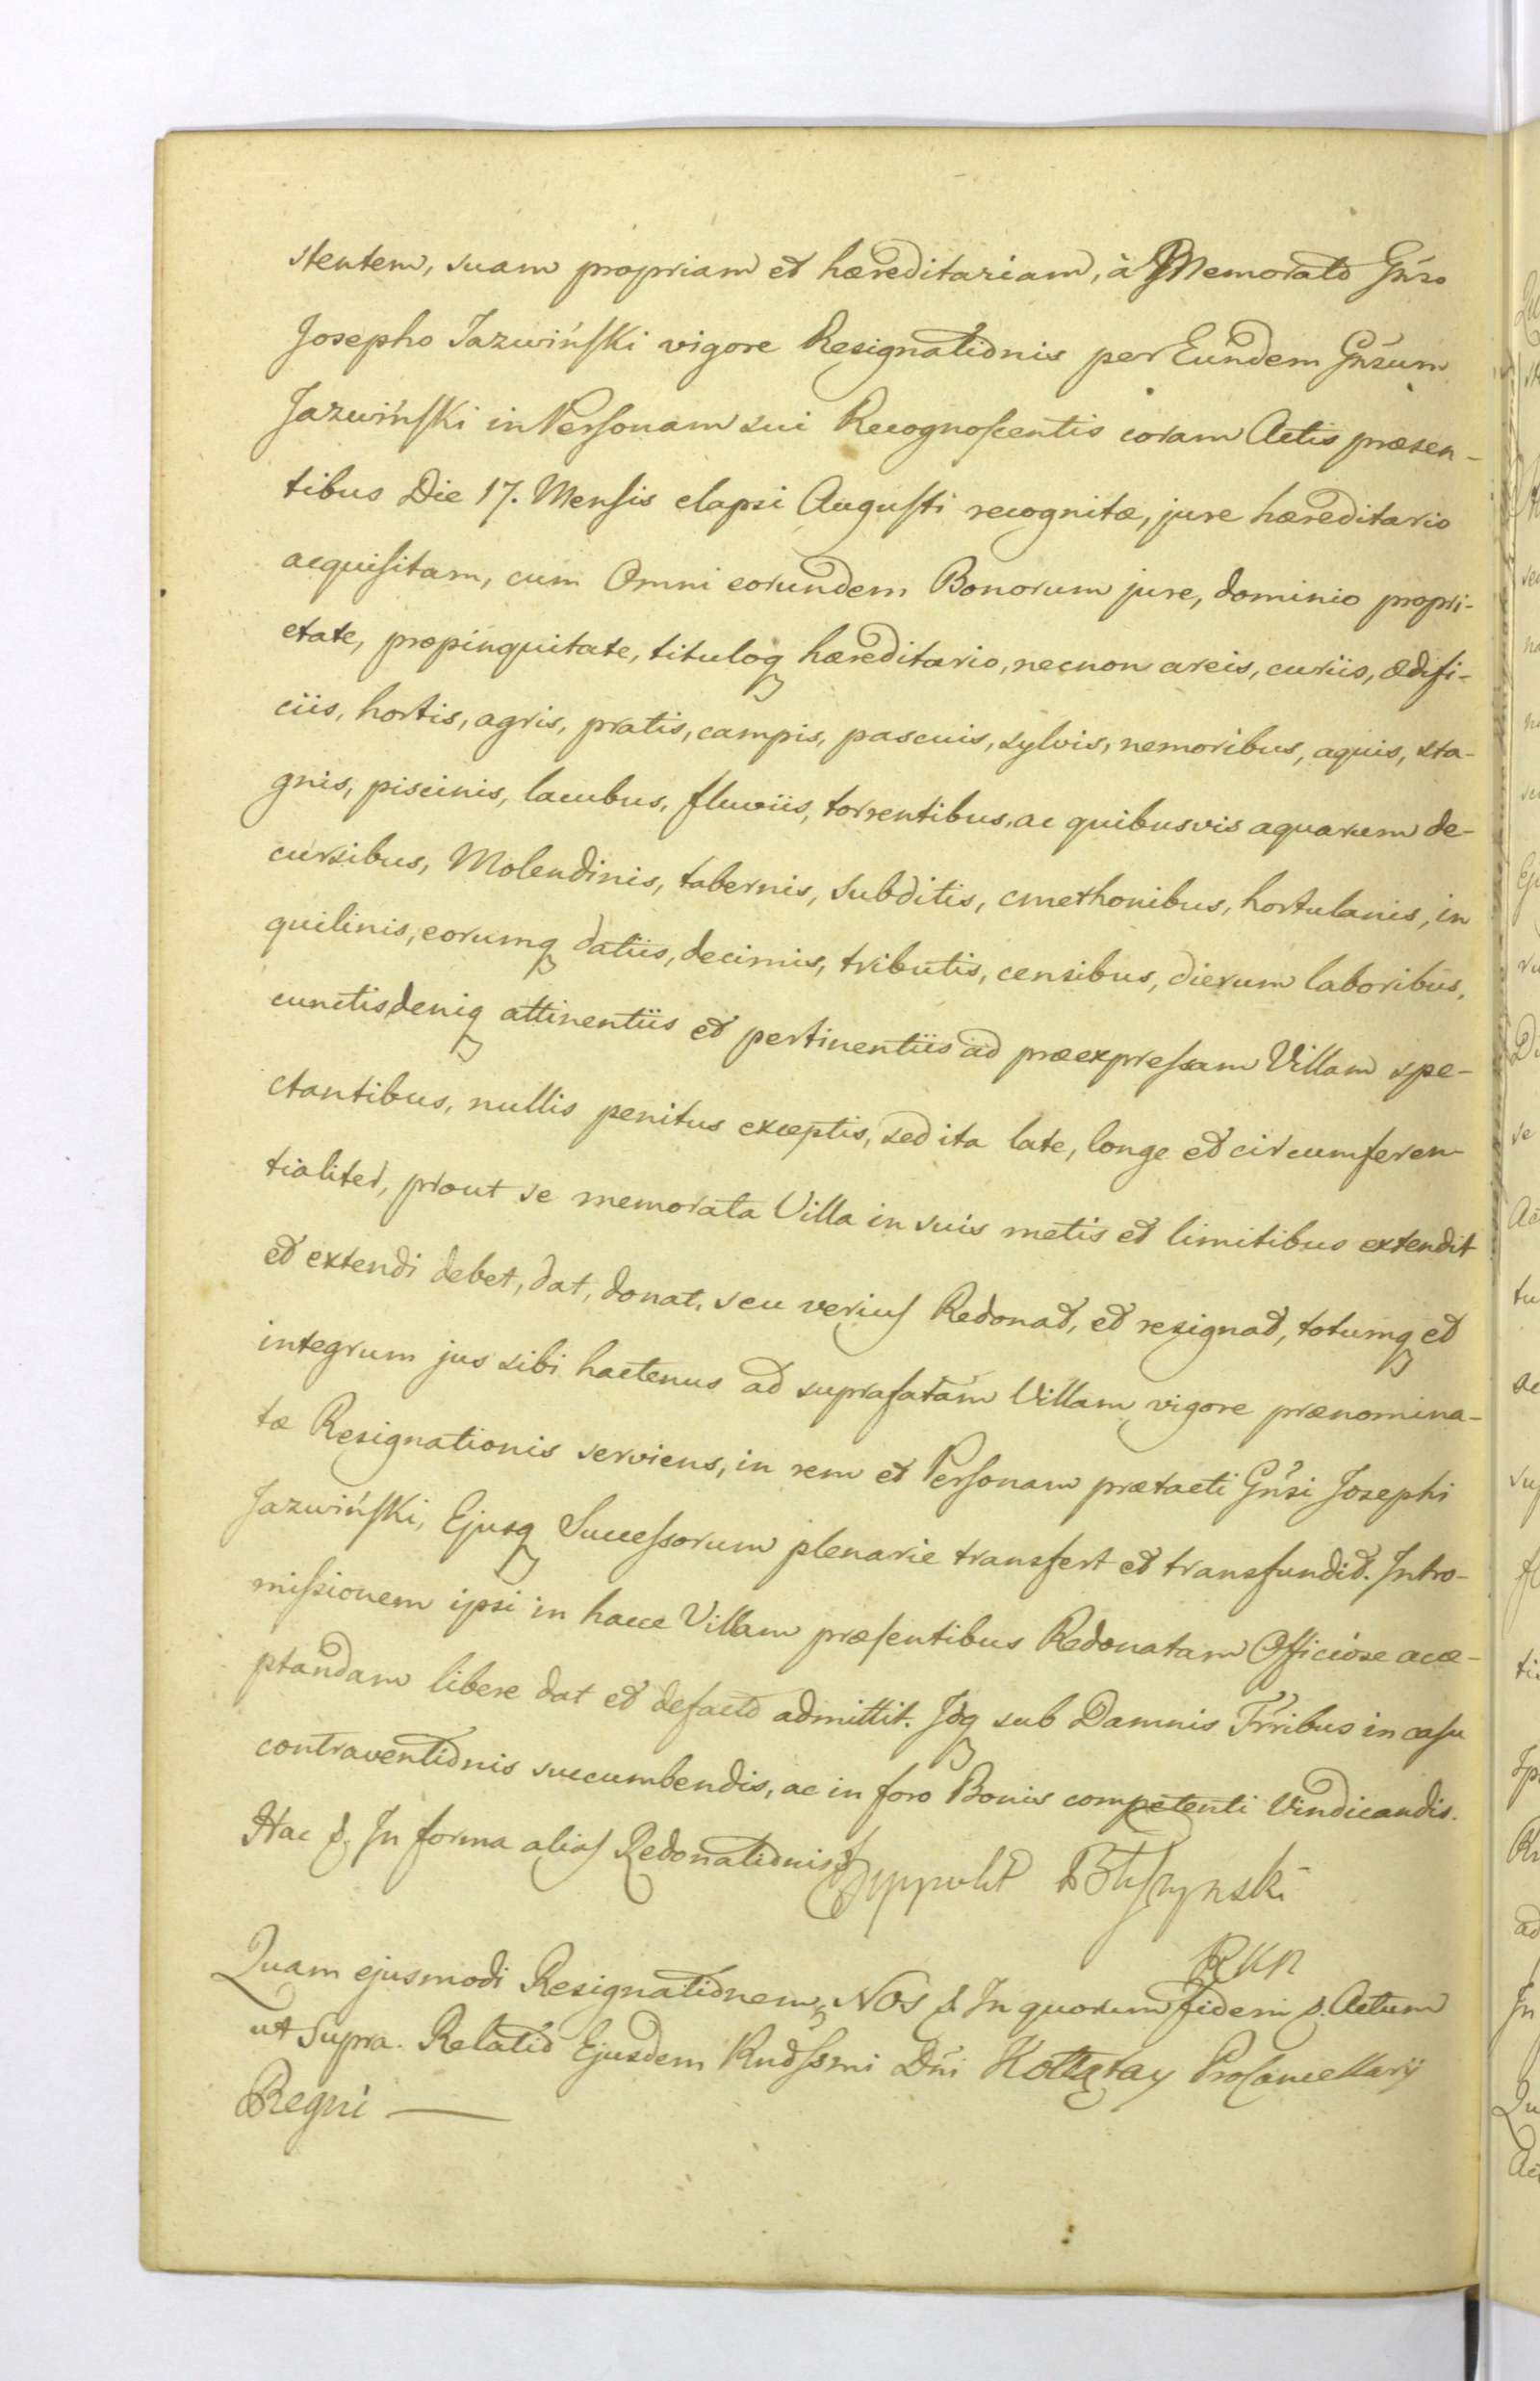 stentem, suam propriam et hæreditariam, à Memorato Gñso
Josepho Jazwińſki vigore Resignationis per Eundem Gñsum
Jazwińſki in Perſonam sui Recognoſcentis coram Actis præsen-
tibus Die 17. Menſis elapsi Auguſti recognitæ, jure hæreditario
acquiſitam, cum Omni eorundem Bonorum jure, dominio propri-
etate, propinquitate, tituloq hæreditario, necnon areis, curiis, ædifi-
ciis, hortis, agris, pratis, campis, pascuis, sylvis, nemoribus, aquis, sta-
gnis, piscinis, lacubus, fluviis, torrentibus, ac quibusvis aquarum de-
cursibus, Molendinis, tabernis, subditis, cmethonibus, hortulanis, in
quilinis, eorumq datiis, decimis, tributis, censibus, dierum laboribus,
cunctis deniq attinentiis et pertinentiis ad præexpreſsam Villam spe-
ctantibus, nullis penitus exceptis, sed ita late, longe et circumferen-
tialiter, prout se memorata Villa in suis metis et limitibus extendit
et extendi debet, dat, donat, seu veriuſ Redonat, et resignat, totumq et
integrum jus sibi hactenus ad suprafatam Villam vigore prænomina-
tæ Resignationis serviens, in rem et Perſonam prætacti Gñsi Josephi
Jazwińſki, Ejusq Succeſsorum plenarie transfert et transfundit. Intro-
miſsionem ipsi in hacce Villam præſentibus Redonatam Officiose acce-
ptandam libere dat et defacto admittit. Idq sub Damnis Trr̃ibus in caſu
contraventionis succumbendis, ac in foro Bonis competenti Vindicandis.
Hac &. In forma aliaſ Redonationis &
Hyppolit
RKR
Quam ejusmodi Resignationem, Nos &. In quorum fidem &. Actum
ut Supra. Relatio Ejusdem Rndſsmi Dñi Kołłątay ProCancellarij
Regni —